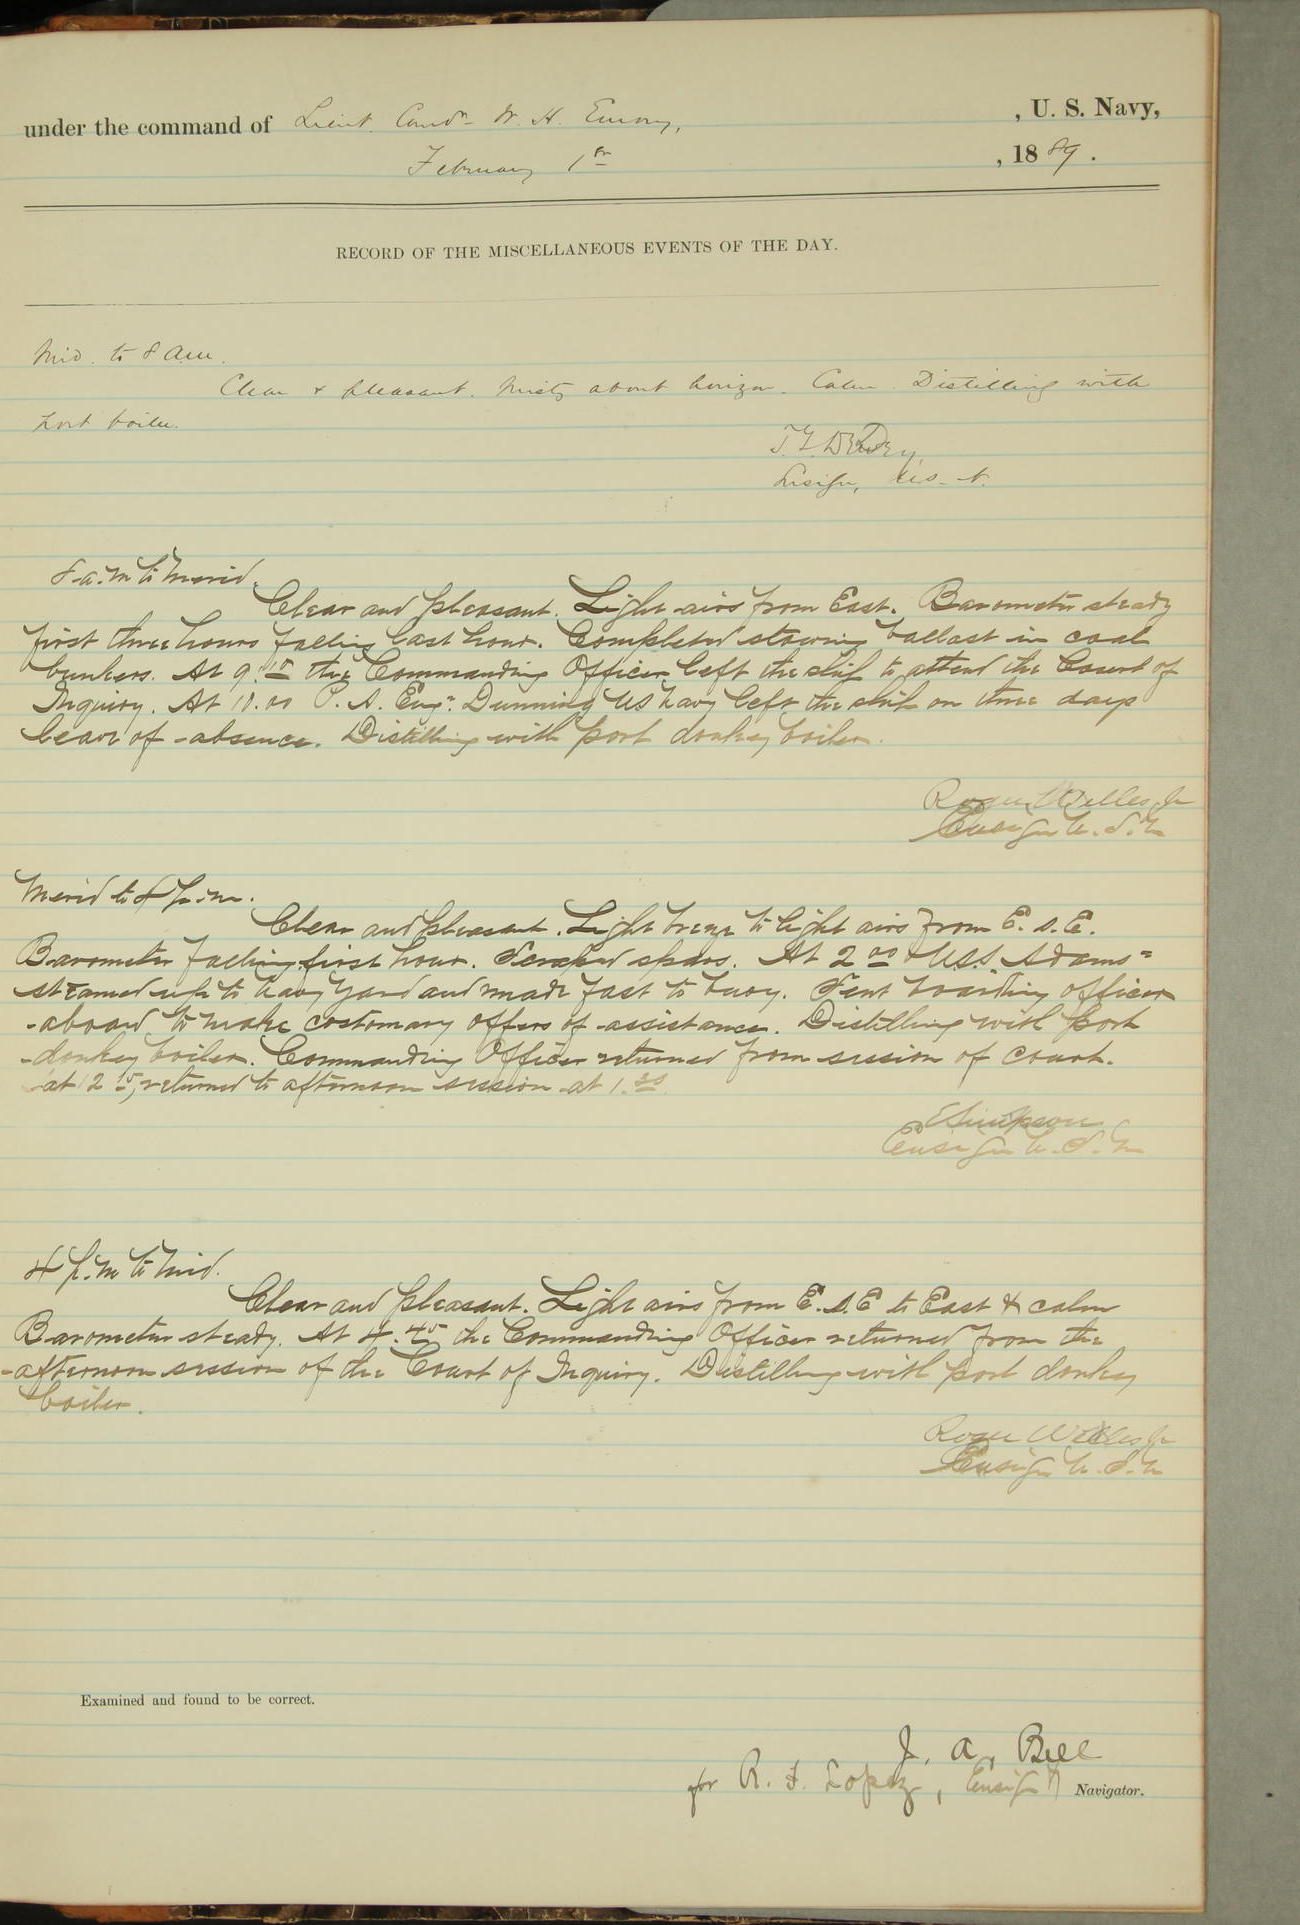 under the command of Lieut. Comdr. W. H. Emory, , U. S. Navy,
February 1st , 1889.
RECORD OF THE MISCELLANEOUS EVENTS OF THE DAY.
Mid. to 8 a.m.
Clear & pleasant. Misty about horizon. Calm. Distilling with
port boiler.
T. G. Dewey,
Ensign, U.S.N.
8 a.m to Merid.
Clear and pleasant. Light airs from East. Barometer steady
first three hours falling last hour. Completed stowing ballast in coal
bunkers. At 9.15 the Commanding Officer left the ship to attend the Court of
Inquiry. At 10.00 P. A. Engr. Dunning US Navy left the ship on three days
leave of absence. Distilling with port donkey boiler.
Roger Welles Jr
Ensign U.S.N
Merid to 4 p.m.
Clear and pleasant. Light breeze to light airs from E.S.E.
Barometer falling first hour. Scraped spars. At 2.00 U.S.S Adams
steamed up to Navy Yard and made fast to buoy. Sent boarding officer
aboard to make customary offers of assistance. Distilling with port
donkey boiler. Commanding Officer returned from session of court
at 12 15, returned to afternoon session at 1.20.
E Simpson
Ensign U.S.N
4 p.m to Mid.
Clear and pleasant. Light airs from E.S.E to East & calm
Barometer steady. At 4.45 the Commanding Officer returned from the
afternoon session of the Court of Inquiry. Distilling with port donkey
boiler.
Roger Welles Jr
Ensign U.S.N
Examined and found to be correct.
J. A. Bell
for R. F. Lopez, Ensign Navigator.